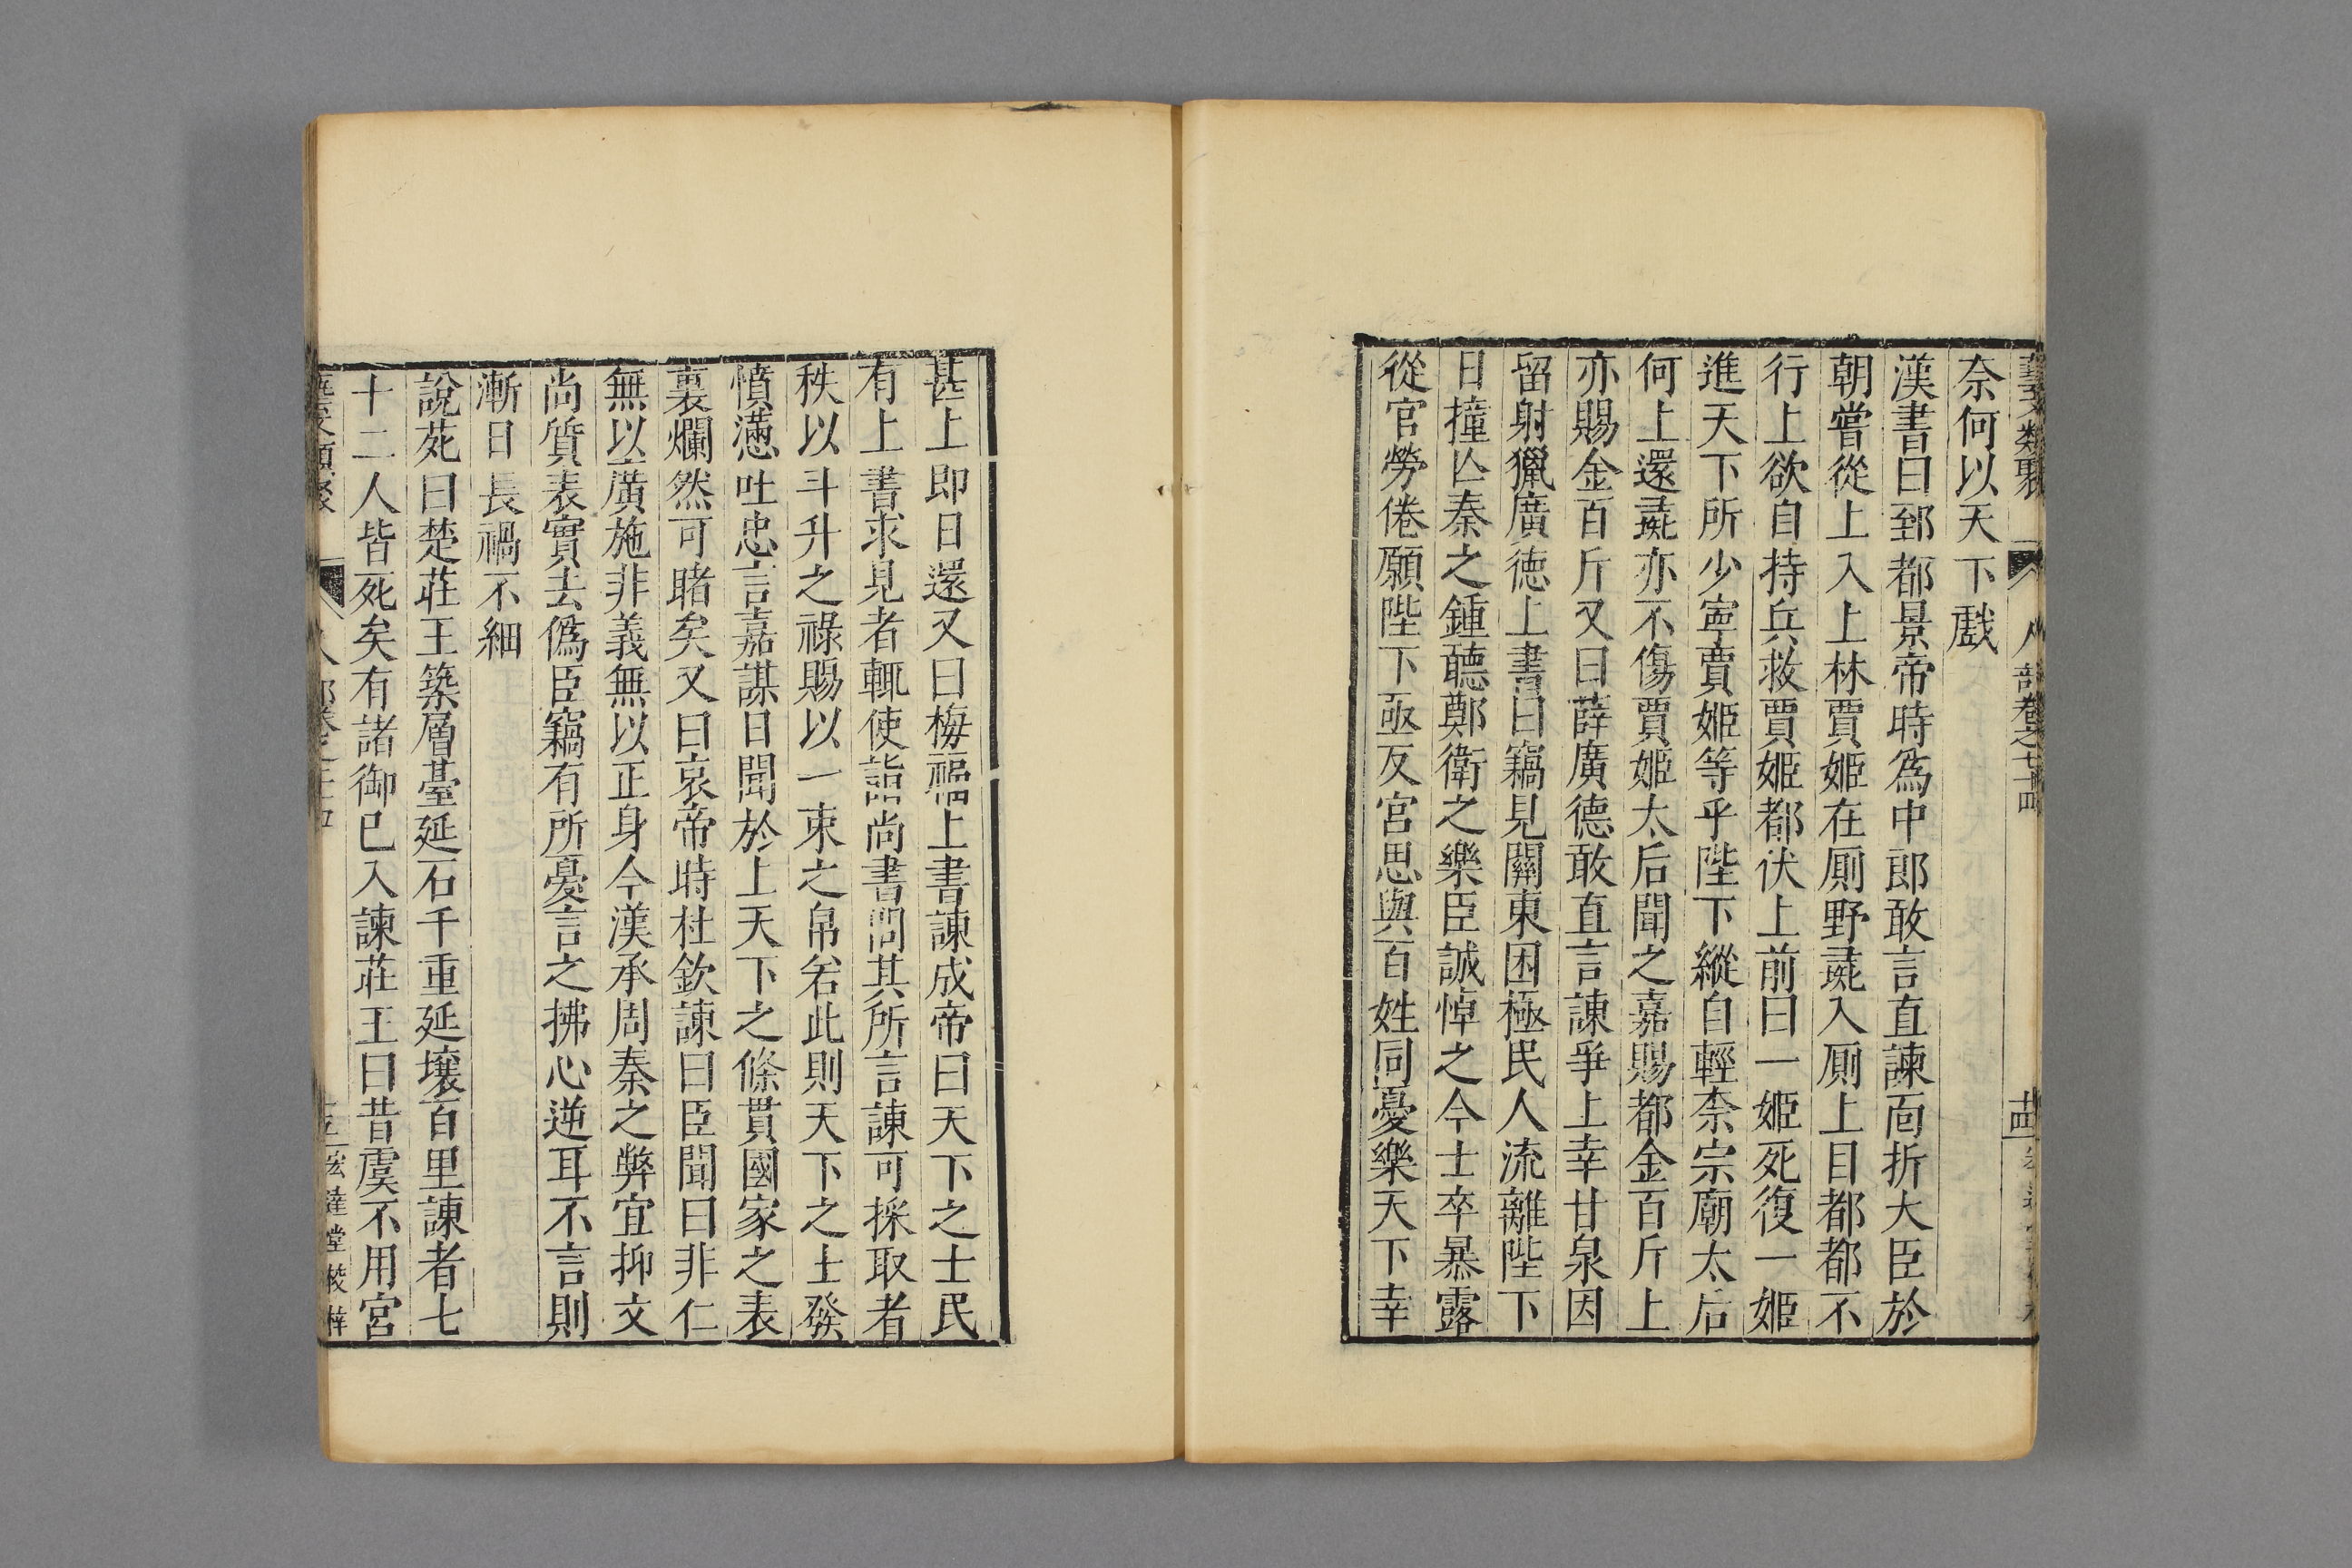 藝文類聚 人部卷之二十四 十四
奈何以天下戲
漢書曰郅都景帝時爲中郎敢言直諫面折大臣於
朝嘗從上入上林賈姬在厠野彘入厠上目都都不
行上欲自持兵救賈姬都伏上前曰一姬死復一姬
進天下所少寧賈姬等乎陛下縱自輕柰宗廟太后
何上還彘亦不傷賈姬太后聞之嘉賜都金百斤上
亦賜金百斤又曰薛廣德敢直言諫爭上幸甘泉因
留射獵廣徳上書曰竊見關東困極民人流離陛下
日撞亾秦之鍾聽鄭衛之樂臣誠悼之今士卒暴露
從官勞倦願陛下亟反宮思與百姓同憂樂天下幸
甚上即日還又曰梅福上書諫成帝曰天下之士民
有上書求見者輒使詣尚書問其所言諫可採取者
秩以斗升之祿賜以一束之帛若此則天下之士發
憤懣吐忠言嘉謀日聞於上天下之條貫國家之表
裏爛然可睹矣又曰哀帝時杜欽諫曰臣聞曰非仁
無以廣施非義無以正身今漢承周秦之弊宜抑文
尚質表實去僞臣竊有所憂言之拂心逆耳不言則
漸日長禍不細
說苑曰楚莊王築層臺延石千重延壤百里諫者七
十二人皆死矣有諸御已入諫莊王曰昔虞不用宮
藝文類聚 人部卷之二十四 宏達堂校梓